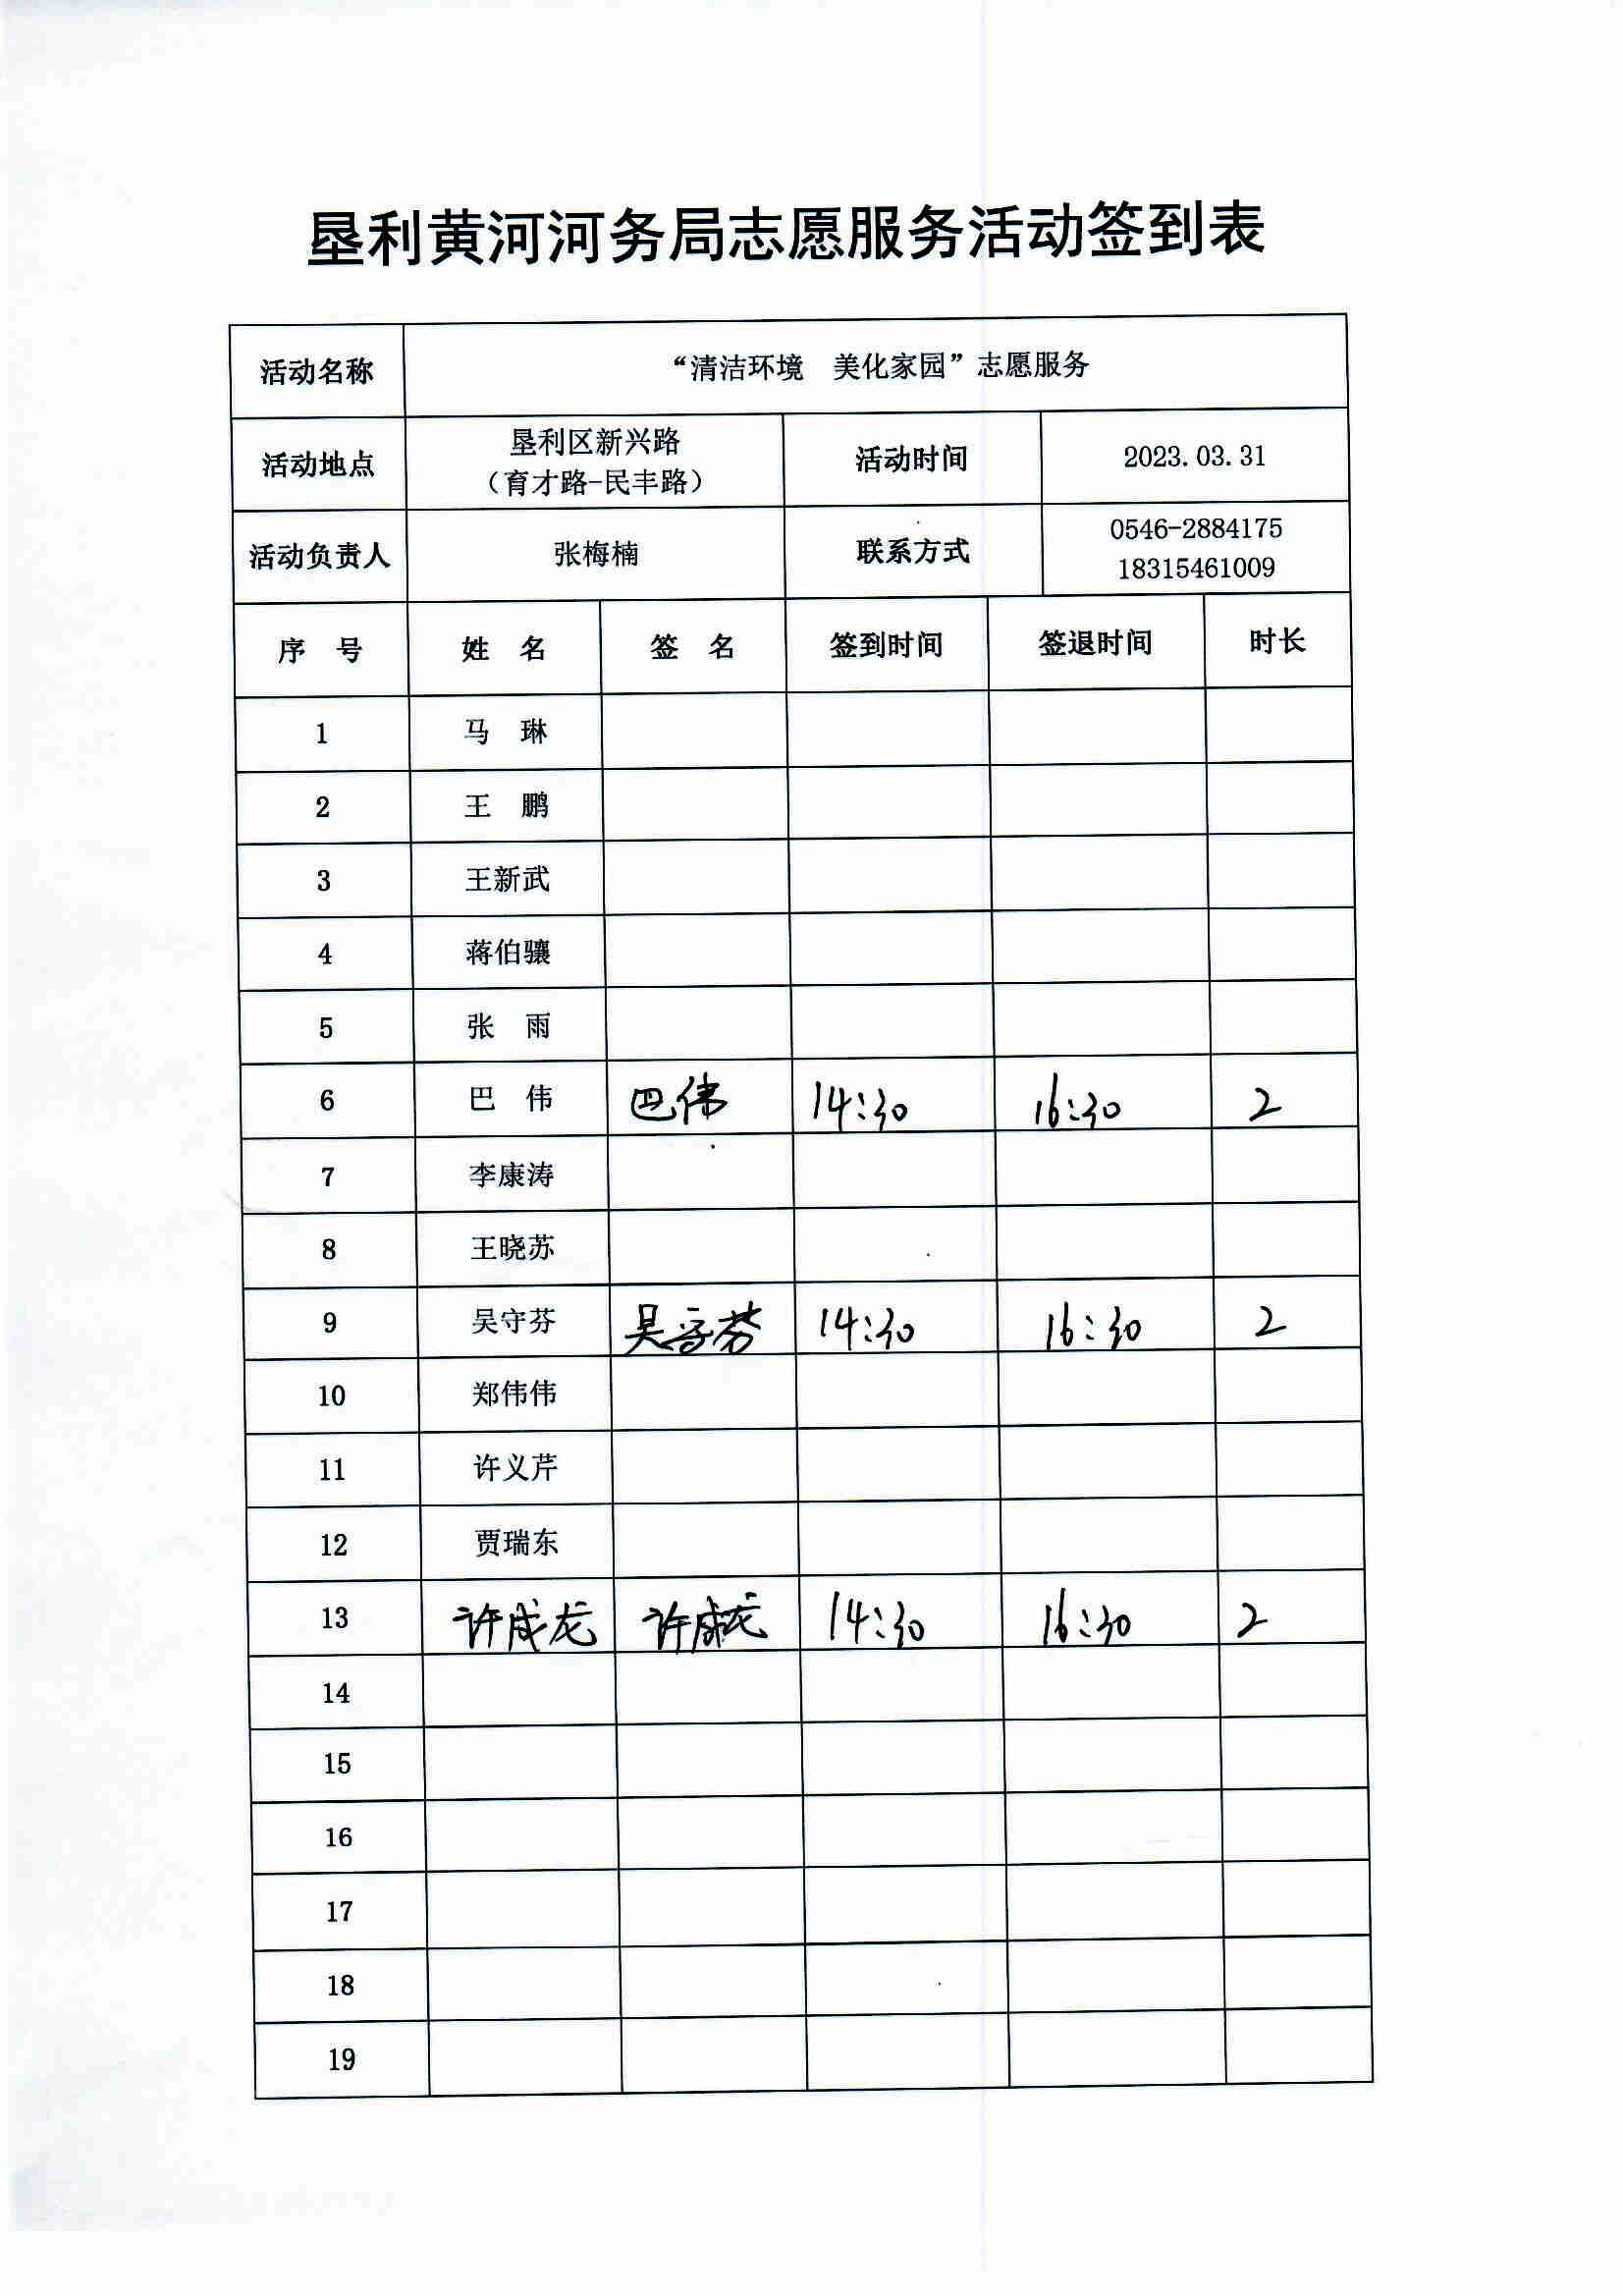 垦利黄河河务局志愿服务活动签到表
活动名称 “清洁环境 美化家园”志愿服务
活动地点 垦利区新兴路 （育才路-民丰路） 活动时间 2023.03.31
活动负责人 张梅楠 联系方式 0546-2884175 18315461009
序 号 姓 名 签 名 签到时间 签退时间 时长
1 马 琳
2 王 鹏
3 王新武
4 蒋伯骧
5 张 雨
6 巴 伟 巴伟 14:30 16:30 2
7 李康涛
8 王晓苏
9 吴守芬 吴守芬 14:30 16:30 2
10 郑伟伟
11 许义芹
12 贾瑞东
13 许成龙 许成龙 14:30 16:30 2
14
15
16
17
18
19